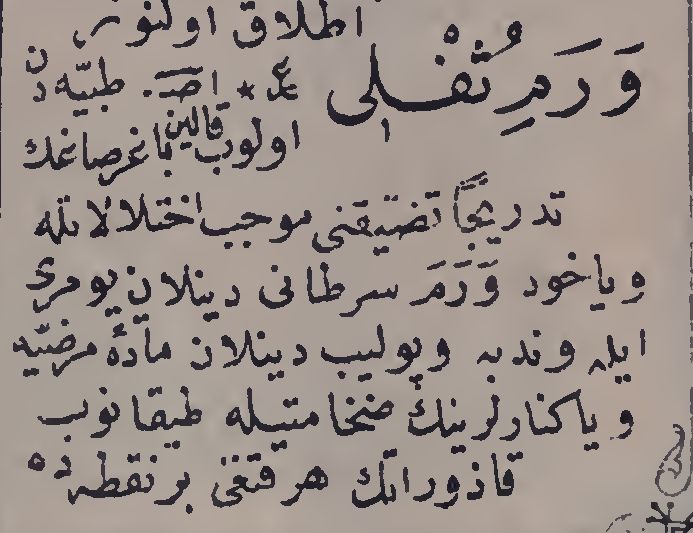 اطلاق اولنور
وَرَمِ ثُفْلِی عَ * اصـ. طبیّه‌دن
اولوب قالین باغرصاغك
تدریجًا تضیقنی موجب اختلالاتله
ویاخود وَرَمَ سرطانی دینلان یومری
ایله وندبه وپولیپ دینلان مادۀ مرضیّه
ویا کنارلرینك ضخامتیله طیقانوب
قاذوراتك هرقنغی برنقطه‌ده